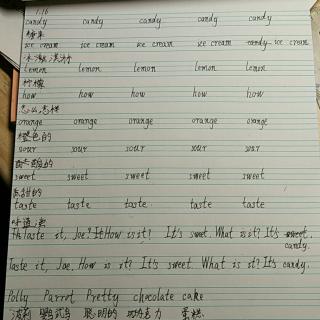 1.16
candy candy candy candy candy
糖果
ice cream ice cream ice cream ice cream candy ice cream
冰激淩
lemon lemon lemon lemon lemon
柠檬
how how how how how
怎么怎样
orange orange orange orange orange
橙色的
sour sour sour sour sour
酸的
sweet sweet sweet sweet sweet
甜的
taste taste taste taste taste
味道
Taste it, Joe? How is it? It's sweet. What is it? It's sweet.
candy.
Taste it, Joe. How is it? It's sweet. What is it? It's candy.
Polly Parrot Pretty chocolate cake
波莉 鹦鹉 聪明的 巧克力 蛋糕